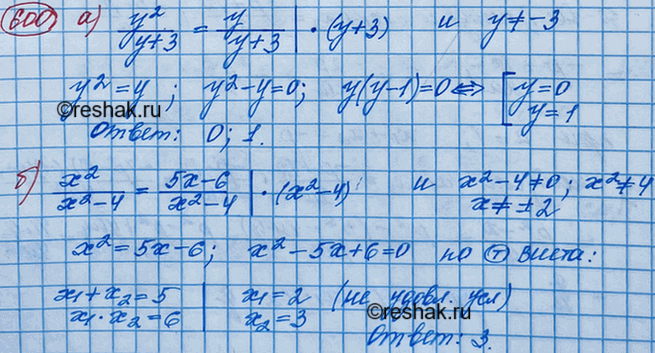 600 а) y²/(y+3) = y/(y+3) | · (y+3) и y ≠ -3
y² = y ; y² - y = 0; y(y-1) = 0 ⟺ [ y = 0
y = 1
©reshak.ru
Ответ: 0; 1.
б) x²/(x²-4) = (5x-6)/(x²-4) | · (x²-4) и x²-4≠0; x²≠4
x ≠ ±2
x² = 5x-6; x² - 5x + 6 = 0 по т Виета:
x₁ + x₂ = 5 | x₁ = 2 (не удовл. усл)
x₁ · x₂ = 6 | x₂ = 3
©reshak.ru
Ответ: 3.